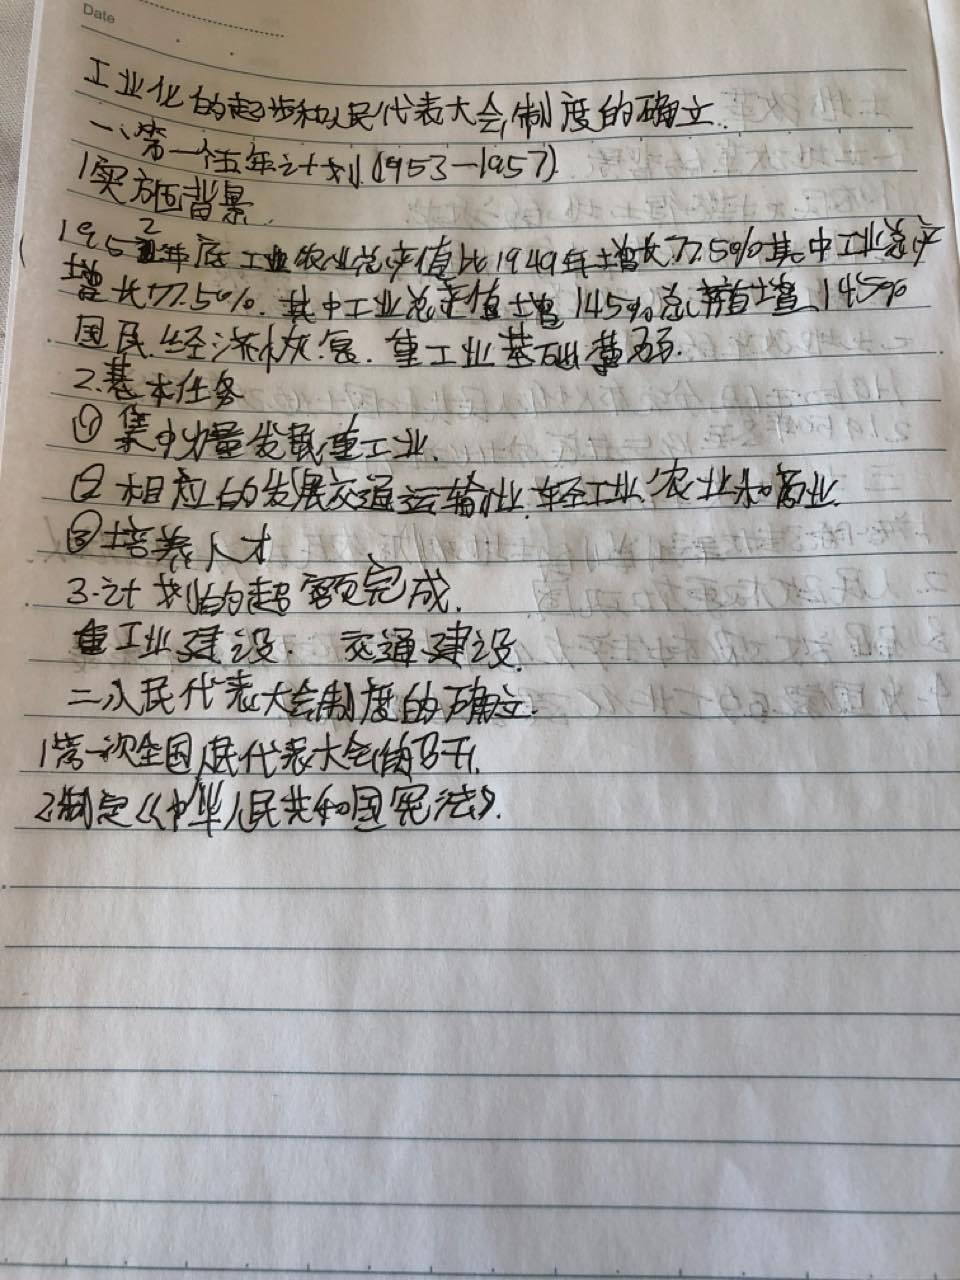 Date
工业化的起步和人民代表大会制度的确立.
一、第一个五年计划(1953—1957)
1实施背景.
1952年底工业农业总产值比1949年增长77.5%其中工业总产
增长77.5%.其中工业总产值增145%总产值增145%
国民经济恢复.重工业基础薄弱.
2.基本任务
①集中力量发展重工业.
②相应的发展交通运输业.轻工业农业和商业.
③培养人才
3.计划的超额完成.
重工业建设. 交通建设.
二人民代表大会制度的确立.
1第一次全国人民代表大会的召开.
2制定《中华人民共和国宪法》.